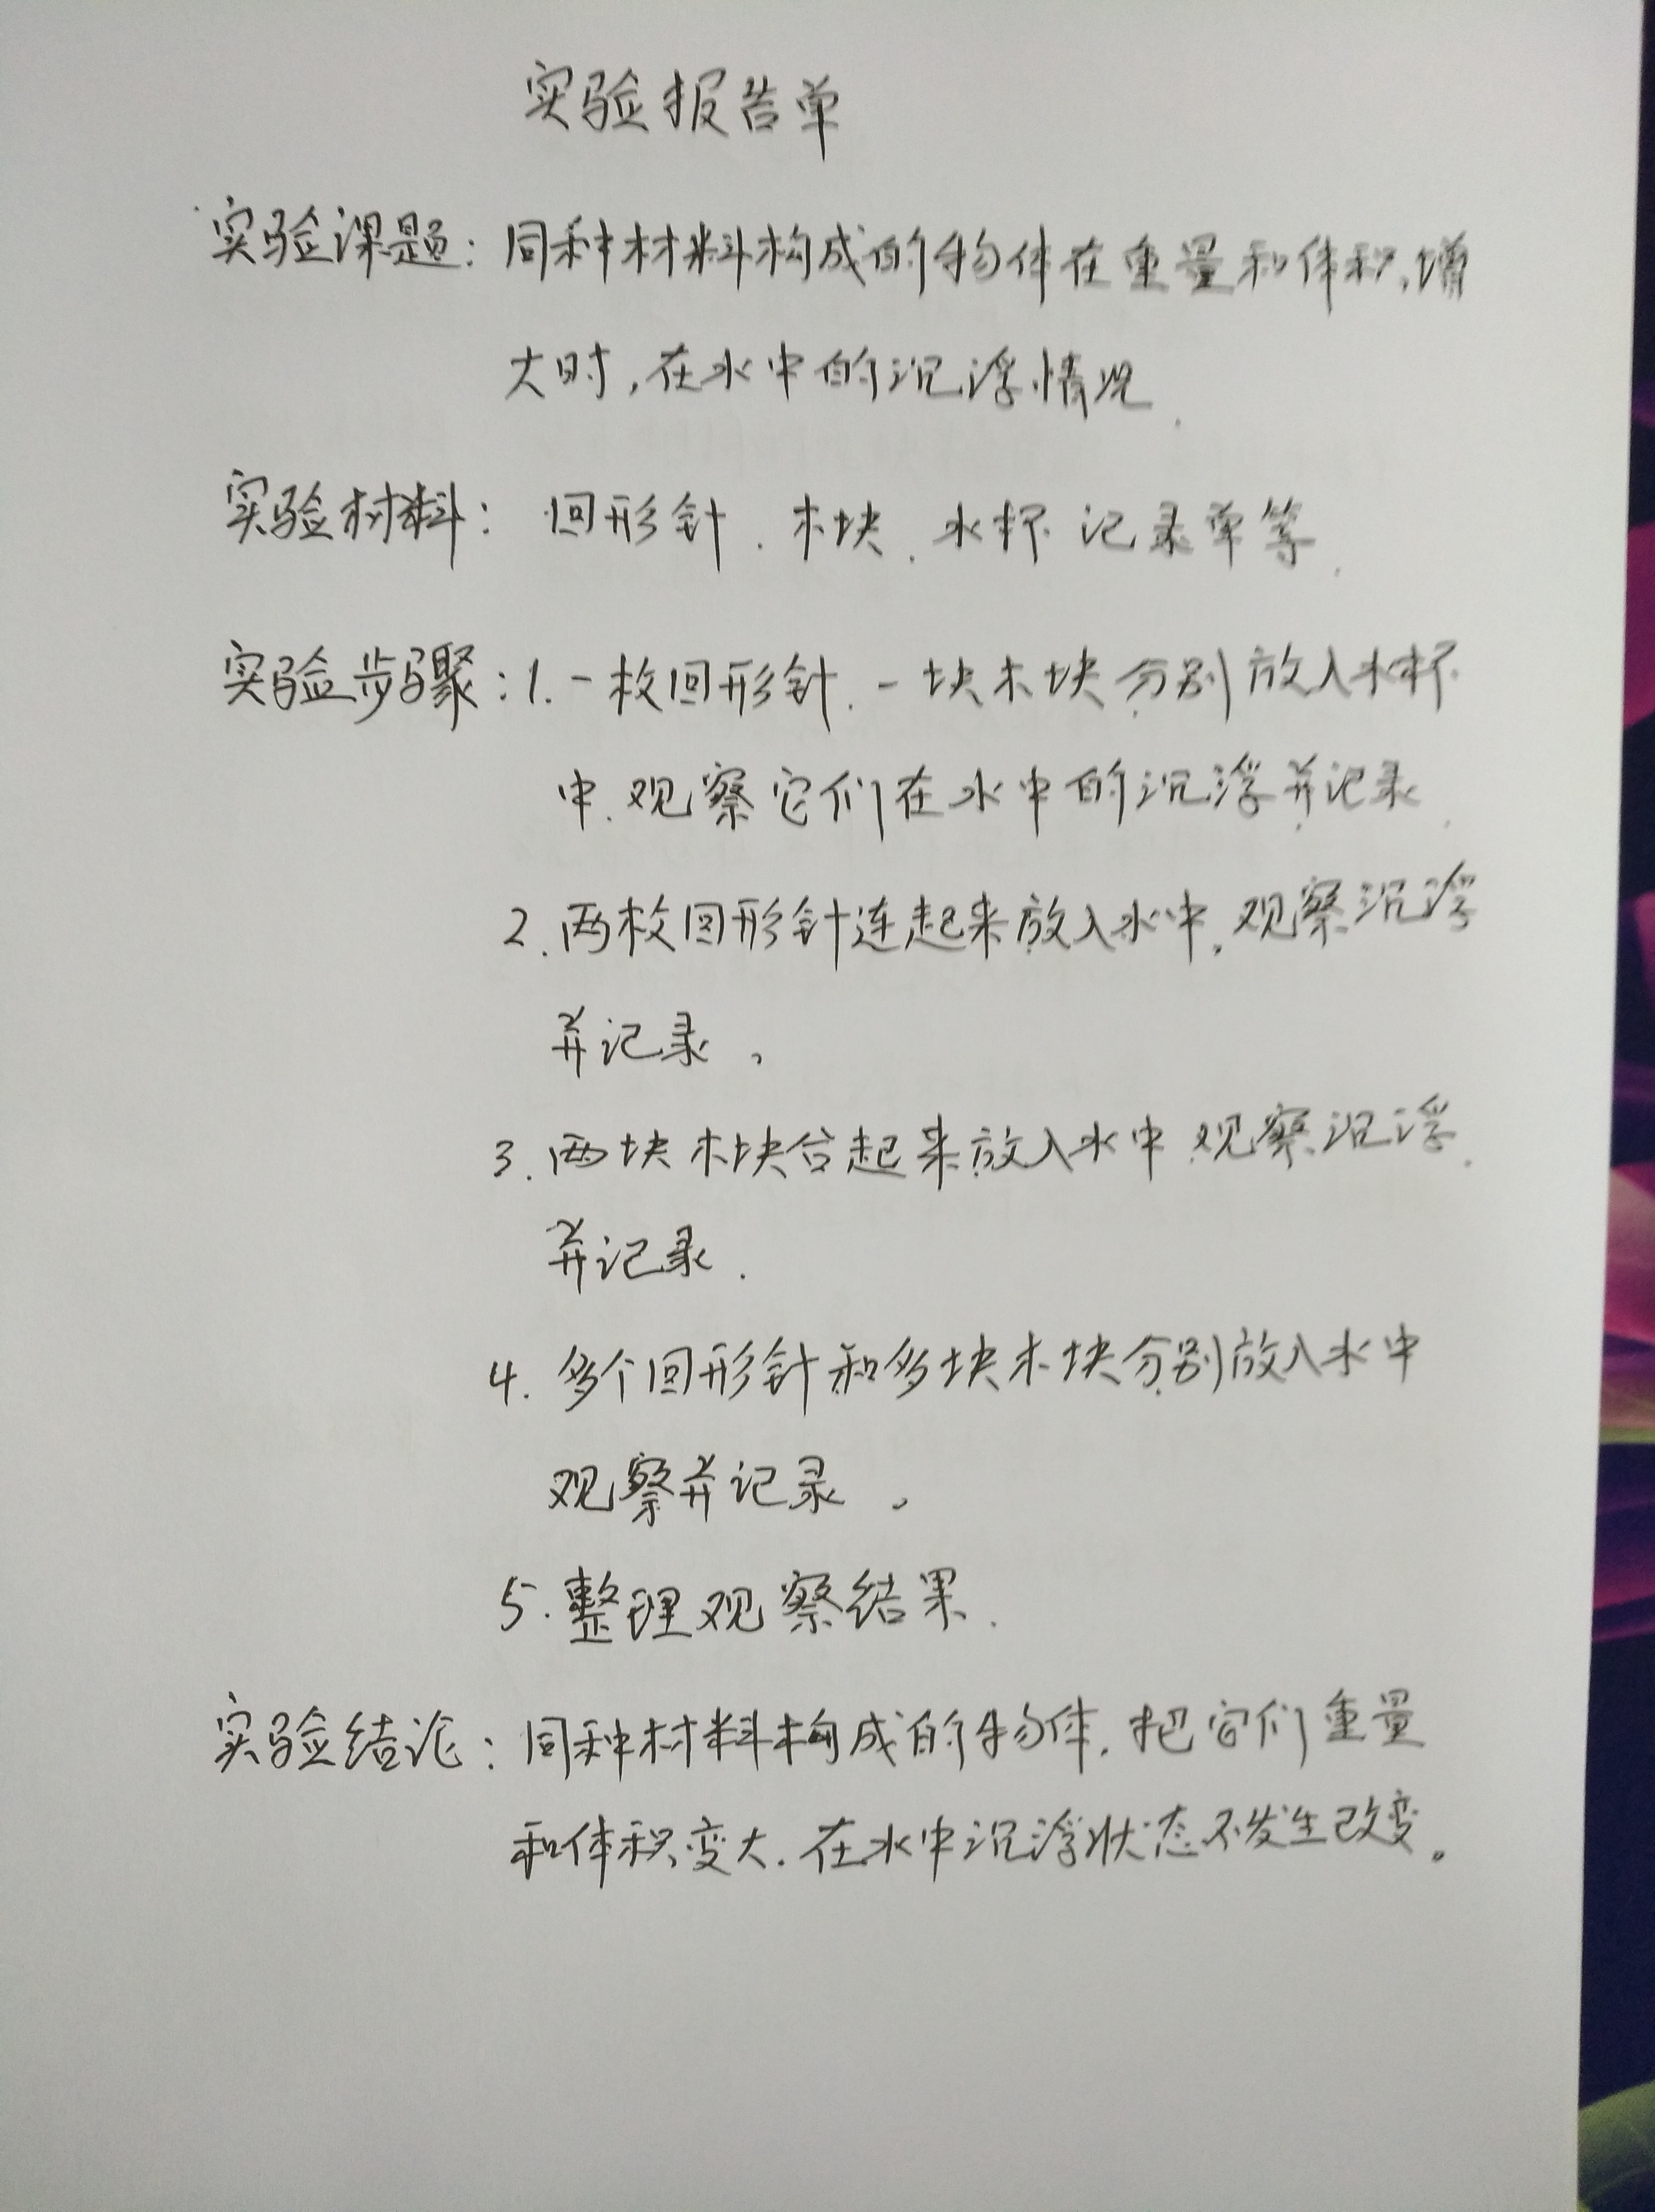 实验报告单
实验课题：同种材料构成的物体在重量和体积增
大时，在水中的沉浮情况.
实验材料：回形针、木块、水杯 记录单等.
实验步骤：1.一枚回形针、一块木块分别放入水杯
中.观察它们在水中的沉浮并记录.
2.两枚回形针连起来放入水中，观察沉浮
并记录，
3.两块木块合起来放入水中 观察沉浮.
并记录.
4.多个回形针和多块木块分别放入水中
观察并记录，
5.整理观察结果.
实验结论：同种材料构成的物体，把它们重量
和体积变大.在水中沉浮状态不发生改变。